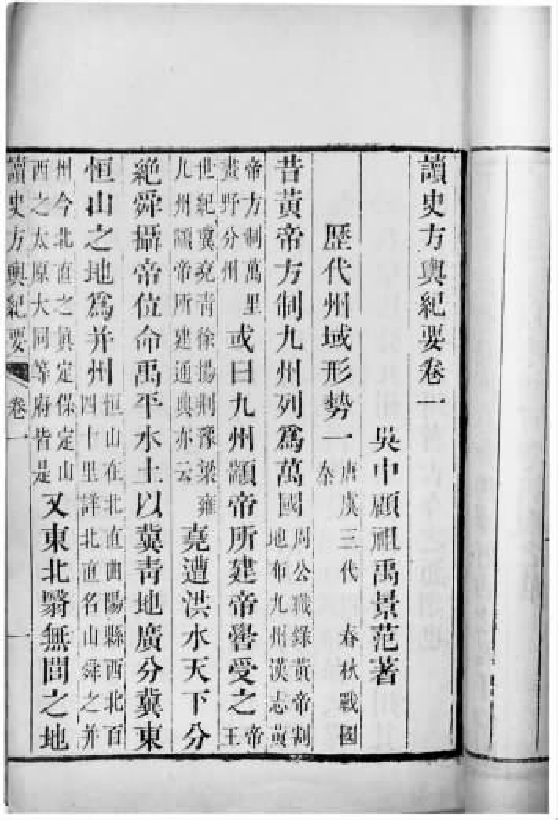 讀史方輿紀要卷一
吳中顧祖禹景范著
歷代州域形勢一唐虞三代 春秋戰國秦
昔黃帝方制九州列爲萬國周公職錄黃帝割地布九州漢志黃
帝方制萬里畫野分州或曰九州顓帝所建帝嚳受之帝王
世紀冀兗青徐揚荆豫梁雍九州顓帝所建通典亦云堯遭洪水天下分
絶舜攝帝位命禹平水土以冀青地廣分冀東
恒山之地爲并州恒山在北直曲陽縣西北百四十里詳北直名山舜之并
州今北直之眞定保定山西之太原大同等府皆是又東北醫無閭之地
讀史方輿紀要 卷一 一